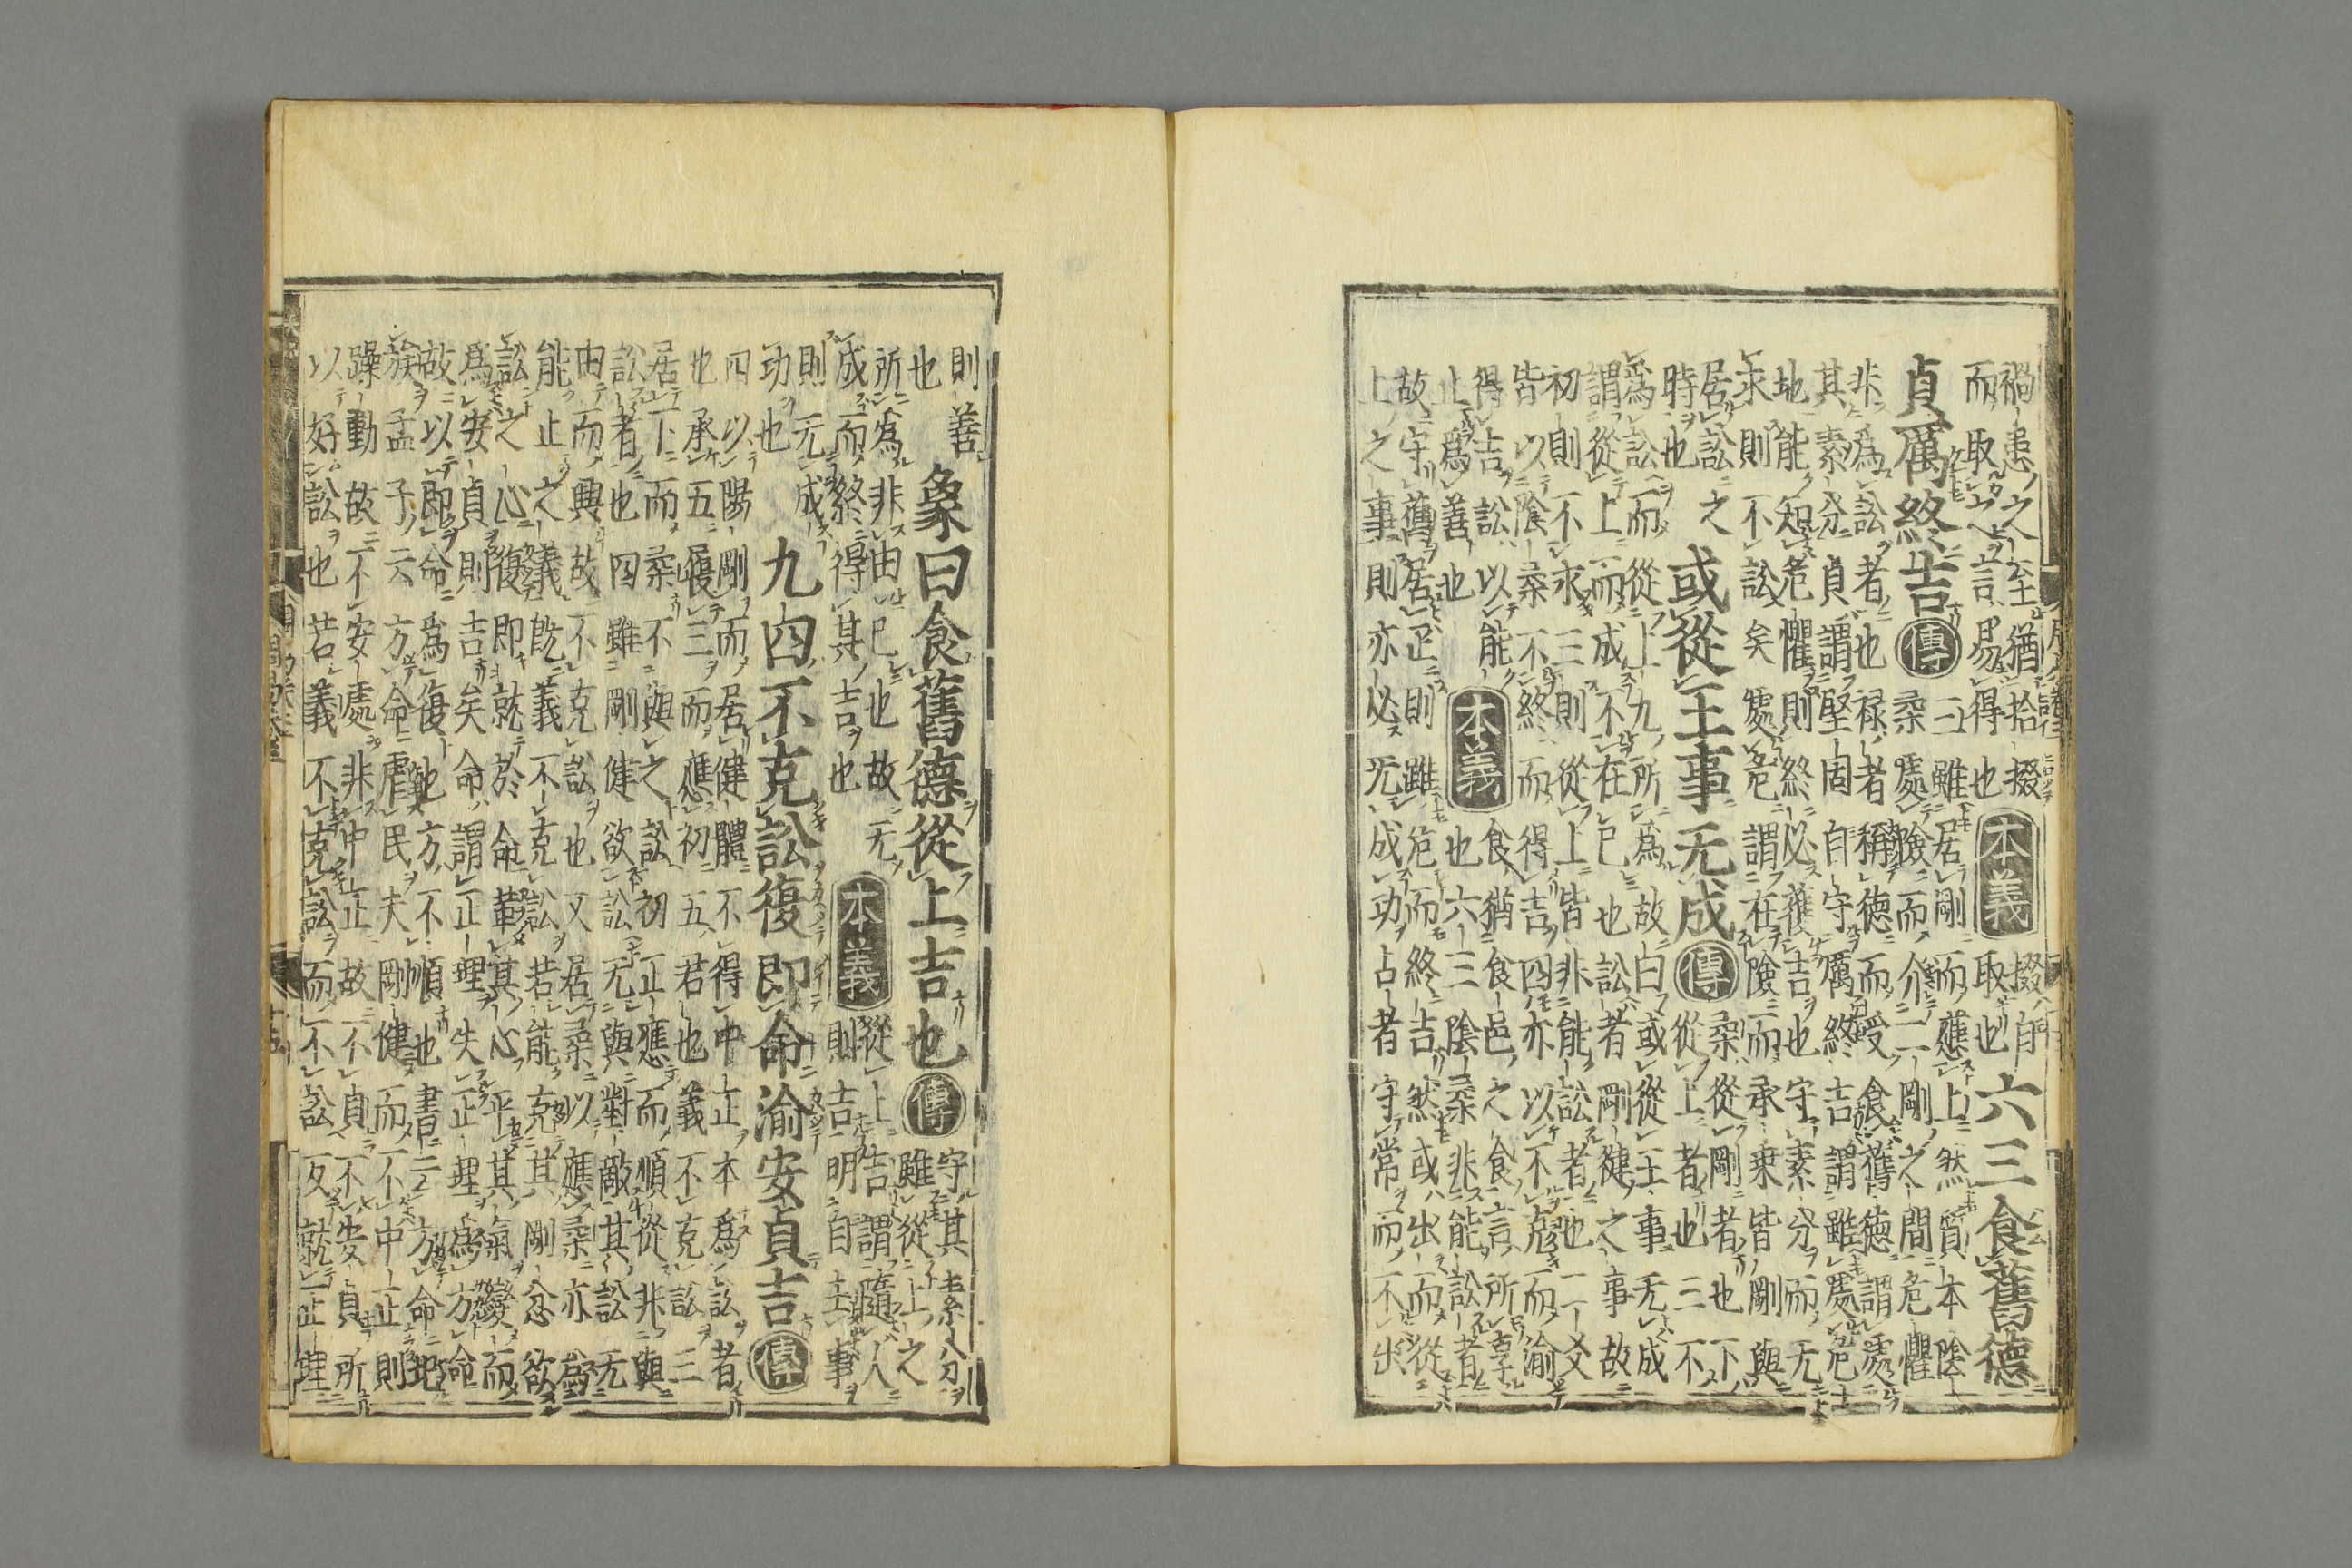 禍患之至猶拾掇
而取之言易得也
本義
掇自
取也
六三食舊德
貞厲終吉
傳
三雖居剛而應上然質本陰
柔處險而介二剛之間危懼
非為訟者也禄者稱德而受食舊德謂處
其素分貞謂堅固自守厲終吉謂雖處危
地能知危懼則終必獲吉也守素分而无
求則不訟矣處危謂在險而承乘皆剛與
居訟之
時也
或從王事无成
傳
柔從剛者也下
從上者也三不
為訟而從上九所為故曰或從王事无成
謂從上而成不在己也訟者剛健之事故
初則不永三則從上皆非能訟者也二爻
皆以陰柔不終而得吉四亦以不克而渝
得吉訟以能
止為善也
本義
食猶食邑之食言所享
也六三陰柔非能訟者
故守舊居正則雖危而終吉然或出而從
上之事則亦必无成功占者守常而不出
則善
也
象曰食舊德從上吉也
傳
守其素分
雖從上之
所為非由己也故无
成而終得其吉也
本義
從上吉謂隨人
則吉明自主事
則无成
功也
九四不克訟復即命渝安貞吉
傳
四以陽剛而居健體不得中正本為訟者
也承五履三而應初五君也義不克訟三
居下而柔不與之訟初正應而順從非與
訟者也四雖剛健欲訟无與對敵其訟无
由而興故不克訟也又居柔以應柔亦為
能止之義既義不克訟若能克其剛忿欲
訟之心復即就於命革其心平其氣變而
為安貞則吉矣命謂正理失正理為方命
故以即命為復也方不順也書云方命圮
族孟子云方命虐民夫剛健而不中正則
躁動故不安處非中正故不貞不安貞所
以好訟也若義不克訟而不訟反就正理